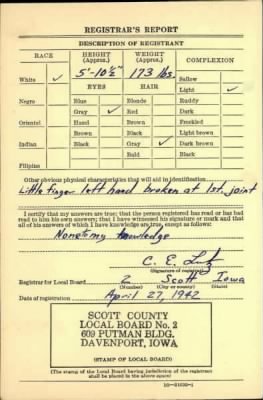 REGISTRAR'S REPORT
DESCRIPTION OF REGISTRANT
RACE HEIGHT (Approx.) WEIGHT (Approx.) COMPLEXION
5'-10½" 173 lbs.
White ✓ Sallow
EYES HAIR Light ✓
Negro Blue Blonde Ruddy
Gray ✓ Red Dark
Oriental Hazel Brown Freckled
Brown Black Light brown
Indian Black Gray ✓ Dark brown
Bald Black
Filipino
Other obvious physical characteristics that will aid in identification
Little finger left hand broken at 1st. joint
I certify that my answers are true; that the person registered has read or has had
read to him his own answers; that I have witnessed his signature or mark and that
all of his answers of which I have knowledge are true, except as follows:
None to my knowledge
C. E. Lutz
(Signature of registrar)
Registrar for Local Board 2 Scott Iowa
(Number) (City or county) (State)
Date of registration April 27, 1942
SCOTT COUNTY
LOCAL BOARD No. 2
609 PUTMAN BLDG.
DAVENPORT, IOWA
(STAMP OF LOCAL BOARD)
(The stamp of the Local Board having jurisdiction of the registrant
shall be placed in the above space)